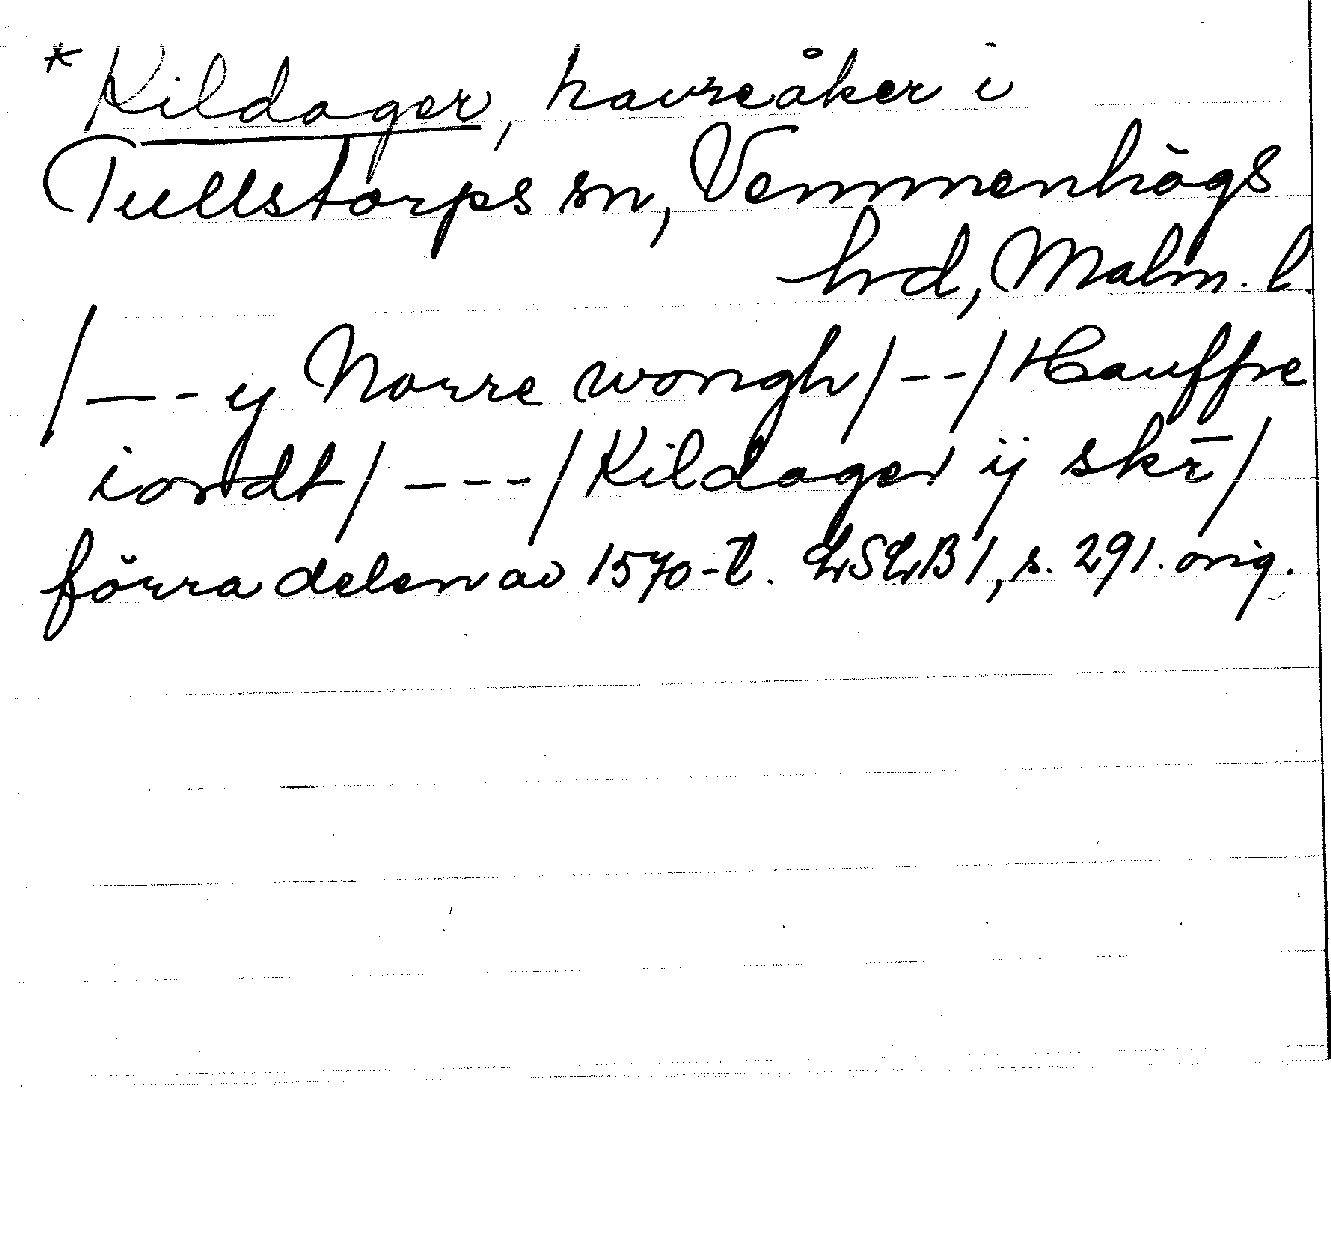 * Kildager, havreåker i
Tullstorps sn, Vemmenhögs
hrd, Malm. l.
/--- y Norre wongh/--/Hauffre
iordt/---/Kildager ij skr̄/
förra delen av 1570-t. LSLB 1, s. 291. orig.